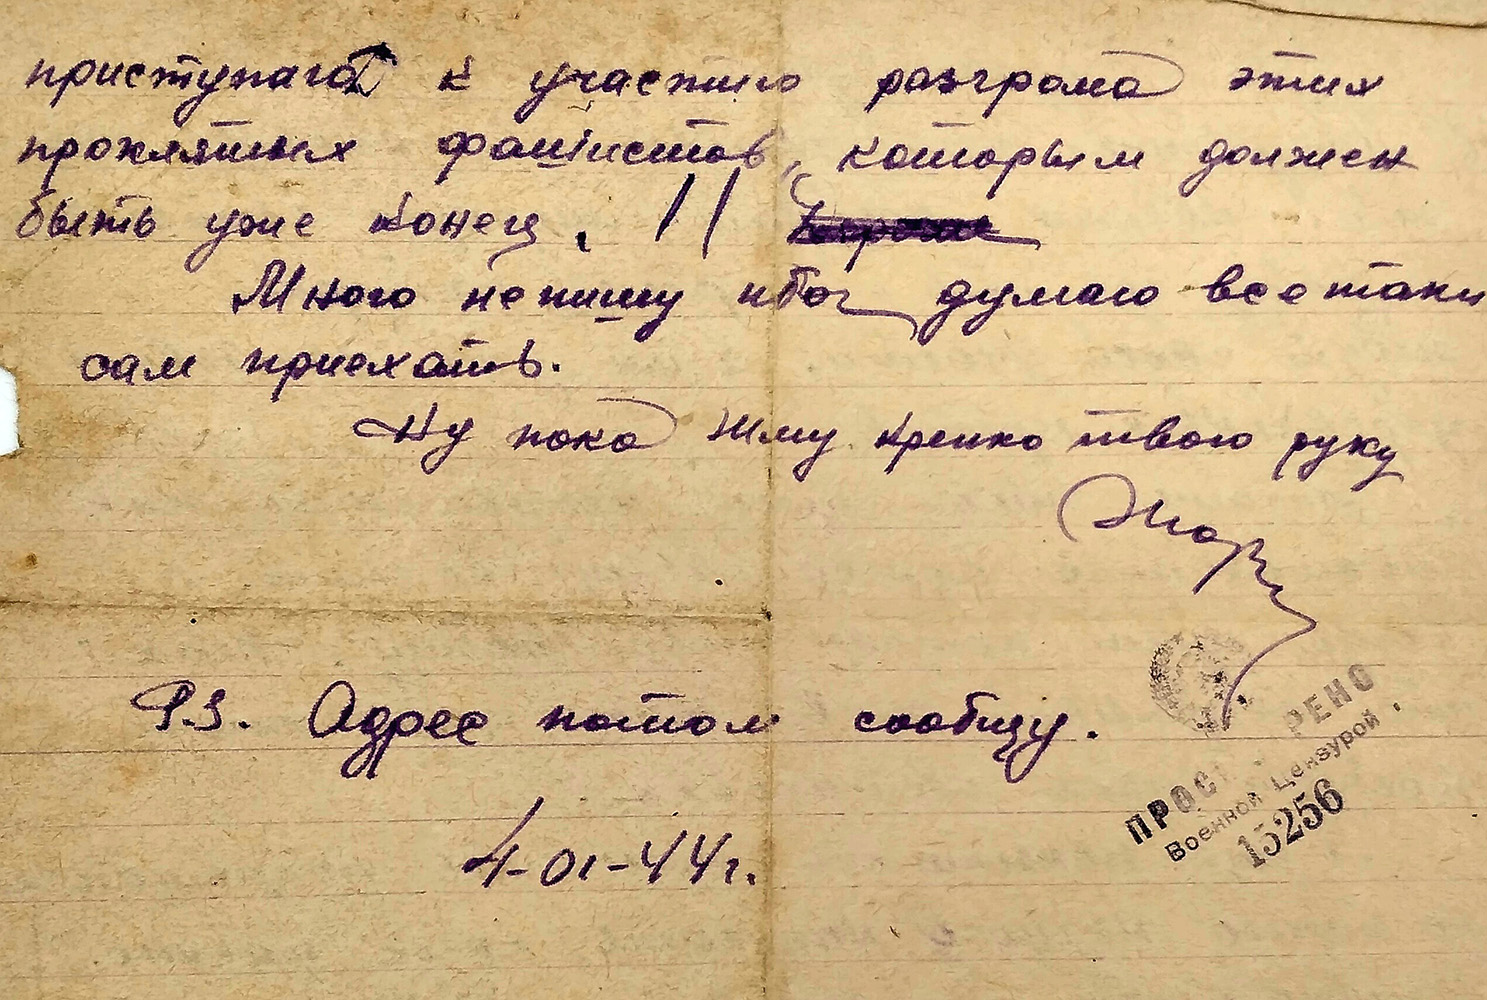 приступают к участию разгрома этих
проклятых фашистов, которым должен
быть уже конец. !!
Много не пишу ибо думаю всетаки
сам приехать.
Ну пока Жму крепко твою руку
P.S. Адрес потом сообщу.
4-01-44 г.
ПРОС РЕНО
Военной Цензурой
15256